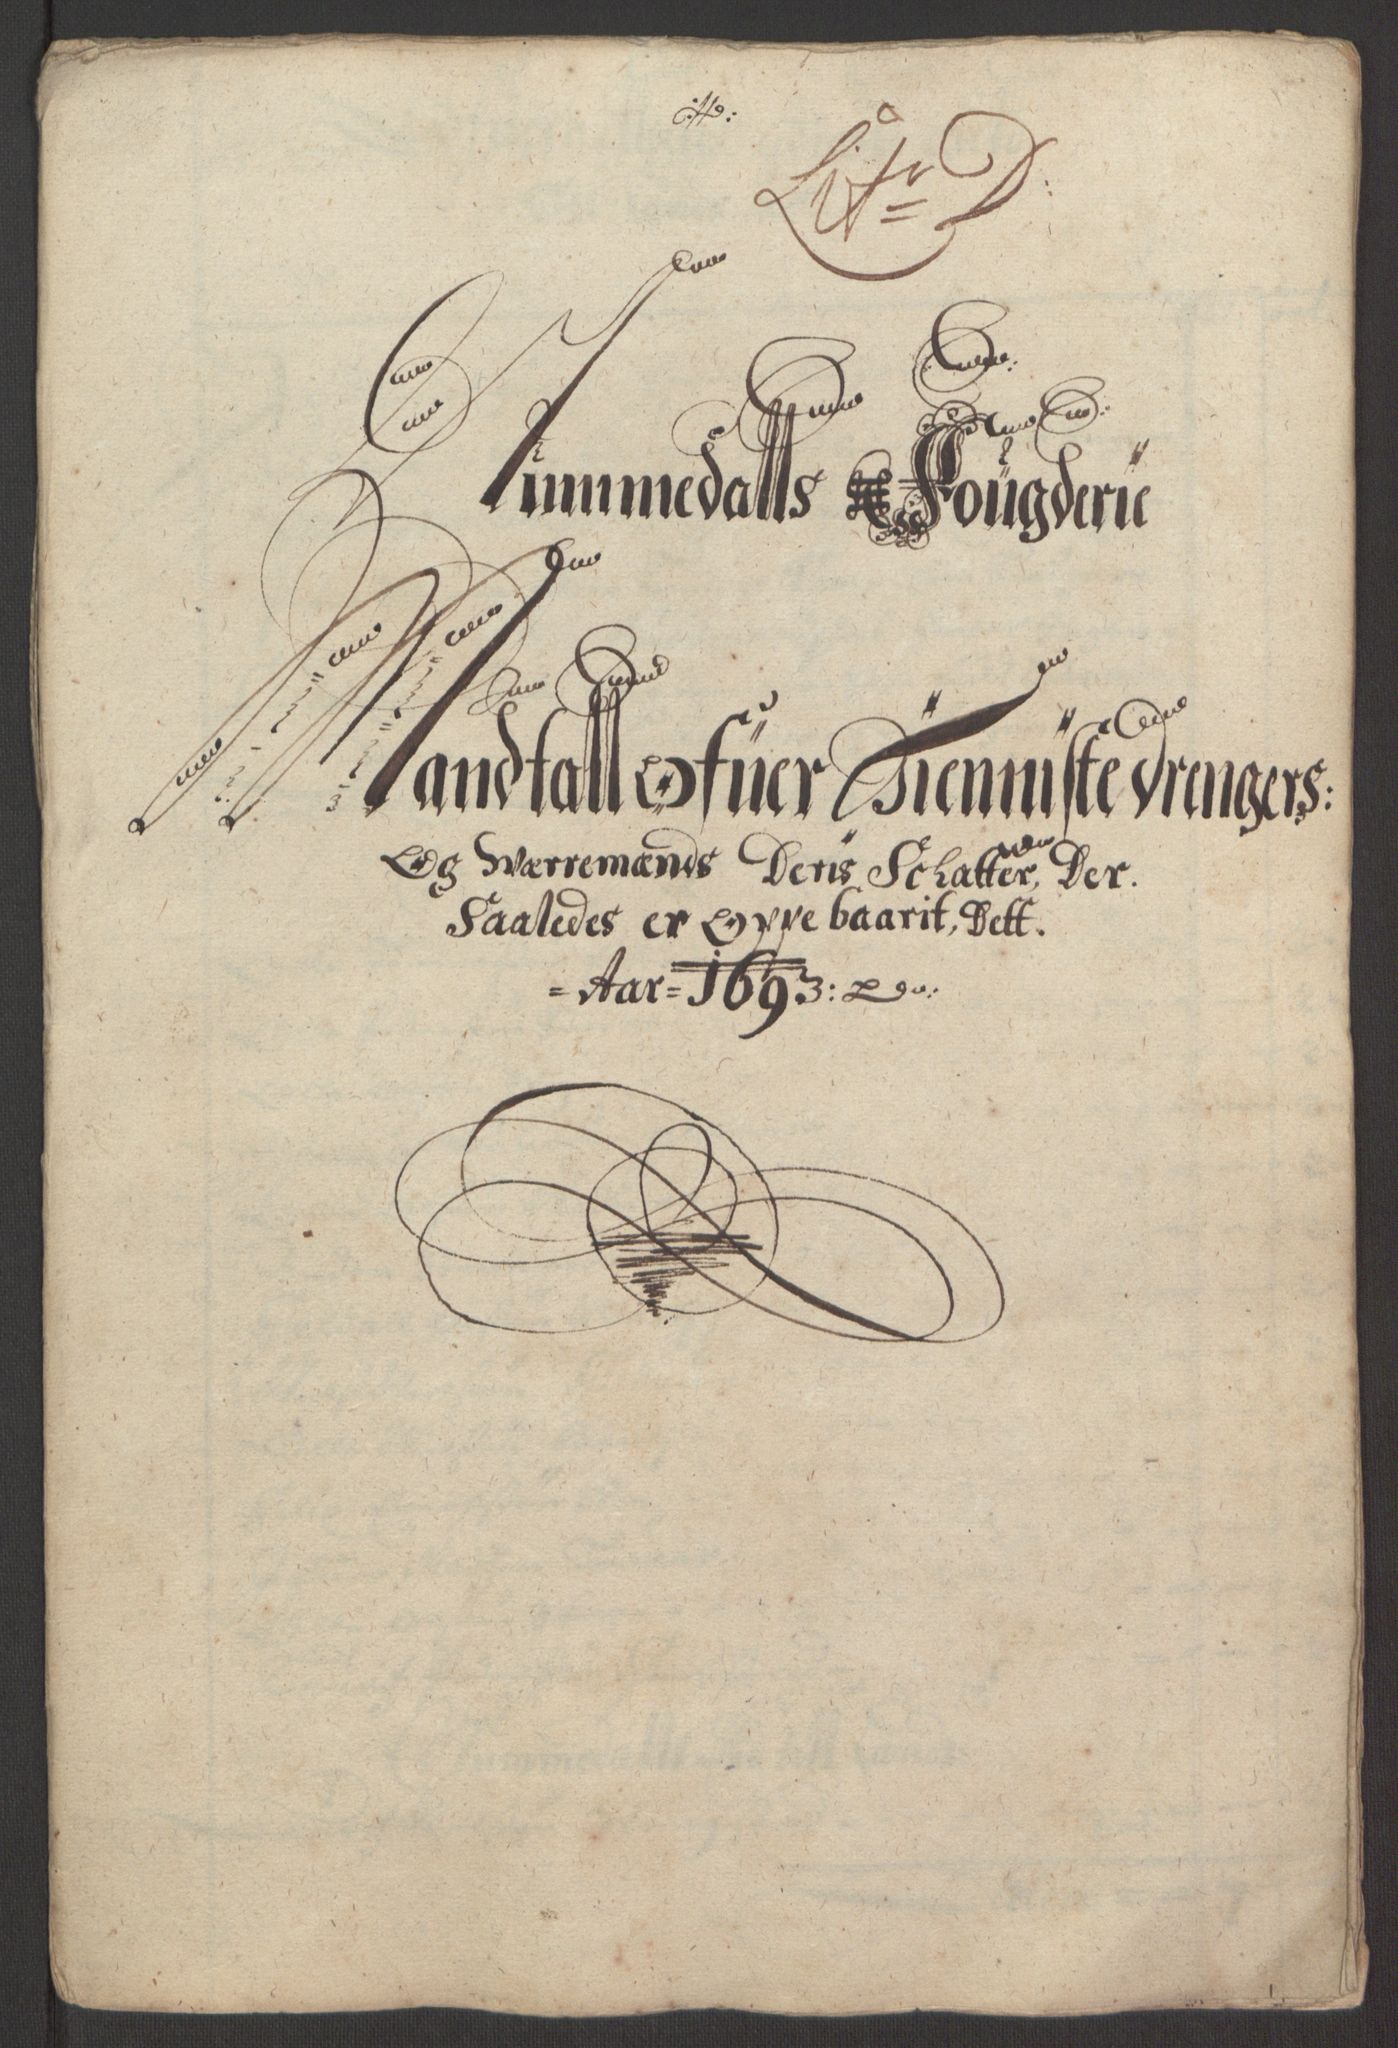 Litr D:
Nummedalls Fougderie
Mandtall Ofuer Tienniste Drengers:
Og Wærremænds Deris Schatter, Der.
Saaledes er Oppe baarit, Dett.
= Aar = 1693: